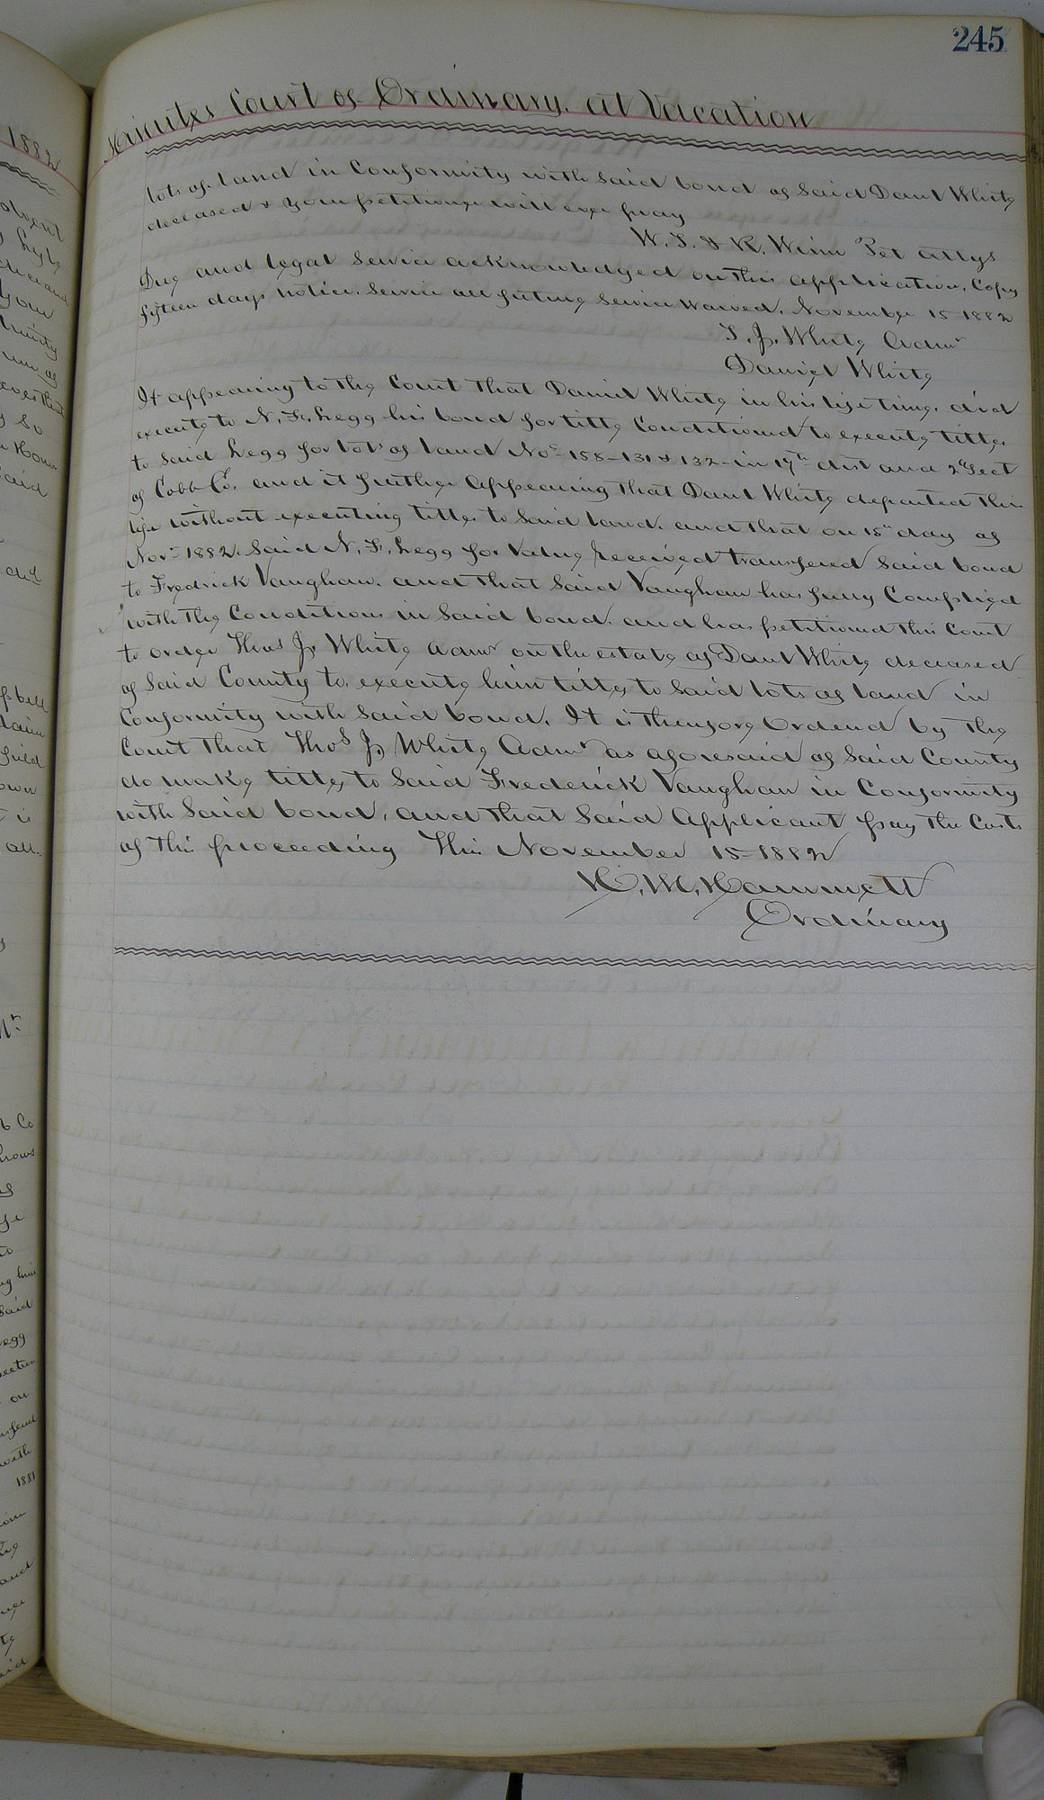 245
Minutes Court of Ordinary, at Vacation
lots of land in Conformity with said bond of said Danl White
deceased & your petitioner will ever pray
W. T. & R. Winn Pet attys
Due and legal service acknowledged on this application, Copy
fifteen days notice. Service all future service waived. November 15-1882
T. J. White Admr
Daniel White
It appearing to the Court that Daniel White in his life time, did
execute to N. F. Legg his bond for title Conditioned to execute title,
to said Legg for lots of land Nos 158-131 & 132-in 17th dist and 2d Sect
of Cobb Co. and it further appearing that Danl White departed this
life without executing title, to said land. and that on 15th day of
Nov- 1882. Said N. F. Legg for Value received transfered said bond
to Fredrick Vaughan. and that said Vaughan has fully Complied
with the Conditions in said bond. and has petitioned this Court
to order Thos J. White admr on the estate of Danl White deceased
of said County to execute him title, to said lots of land in
Conformity with said bond. It is therefore Ordered by the
Court that Thos J. White Admr as aforesaid of said County
do make title, to said Frederick Vaughan in Conformity
with said bond, and that said Applicant pay the Costs
of this proceeding This November 15-1882
H. M. Hammett
Ordinary
1882